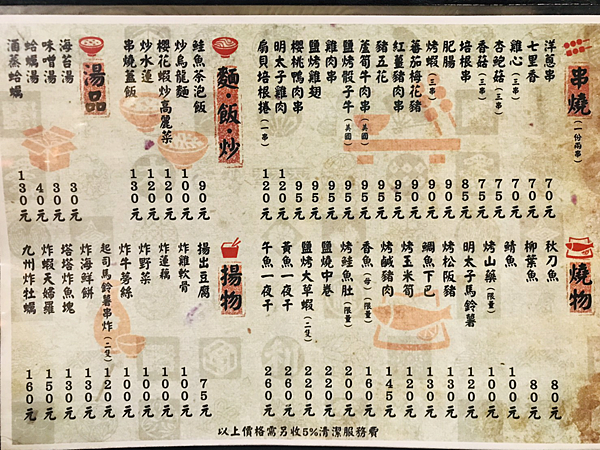 串燒(一份兩串)
洋蔥串 70元
七里香 70元
雞心(三串) 75元
杏鮑菇(三串) 75元
香菇(三串) 75元
培根串 85元
肥腸 90元
烤蝦(三串) 90元
蕃茄梅花豬 95元
紅薑豬肉串 95元
豬五花 95元
蘆筍牛肉串(美國) 95元
鹽烤骰子牛(美國) 95元
鹽烤雞翅 95元
雞肉串 95元
櫻桃鴨肉串 95元
明太子雞肉 120元
扇貝培根捲(一串) 120元
麵·飯·炒
鮭魚茶泡飯 90元
炒烏龍麵 100元
櫻花蝦炒高麗菜 120元
炒水蓮 120元
串燒蓋飯 130元
湯品
海苔湯 30元
味噌湯 30元
蛤蠣湯 40元
酒蒸蛤蠣 130元
燒物
秋刀魚 80元
柳葉魚 80元
鯖魚 100元
烤山藥(限量) 100元
明太子馬鈴薯 120元
烤松阪豬 130元
鯛魚下巴 130元
烤玉米筍 120元
烤鹹豬肉 145元
香魚(母)(限量) 160元
烤鮭魚肚(限量) 200元
鹽燒中卷 220元
鹽烤大草蝦(二隻) 220元
黃魚一夜干 260元
午魚一夜干 260元
揚物
揚出豆腐 75元
炸雞軟骨 100元
炸蓮藕 100元
炸野菜 100元
炸牛蒡絲 100元
起司馬鈴薯串炸(二隻) 120元
炸海鮮餅 130元
塔塔炸魚塊 130元
炸蝦天婦羅 150元
九州炸牡蠣 160元
以上價格需另收5%清潔服務費